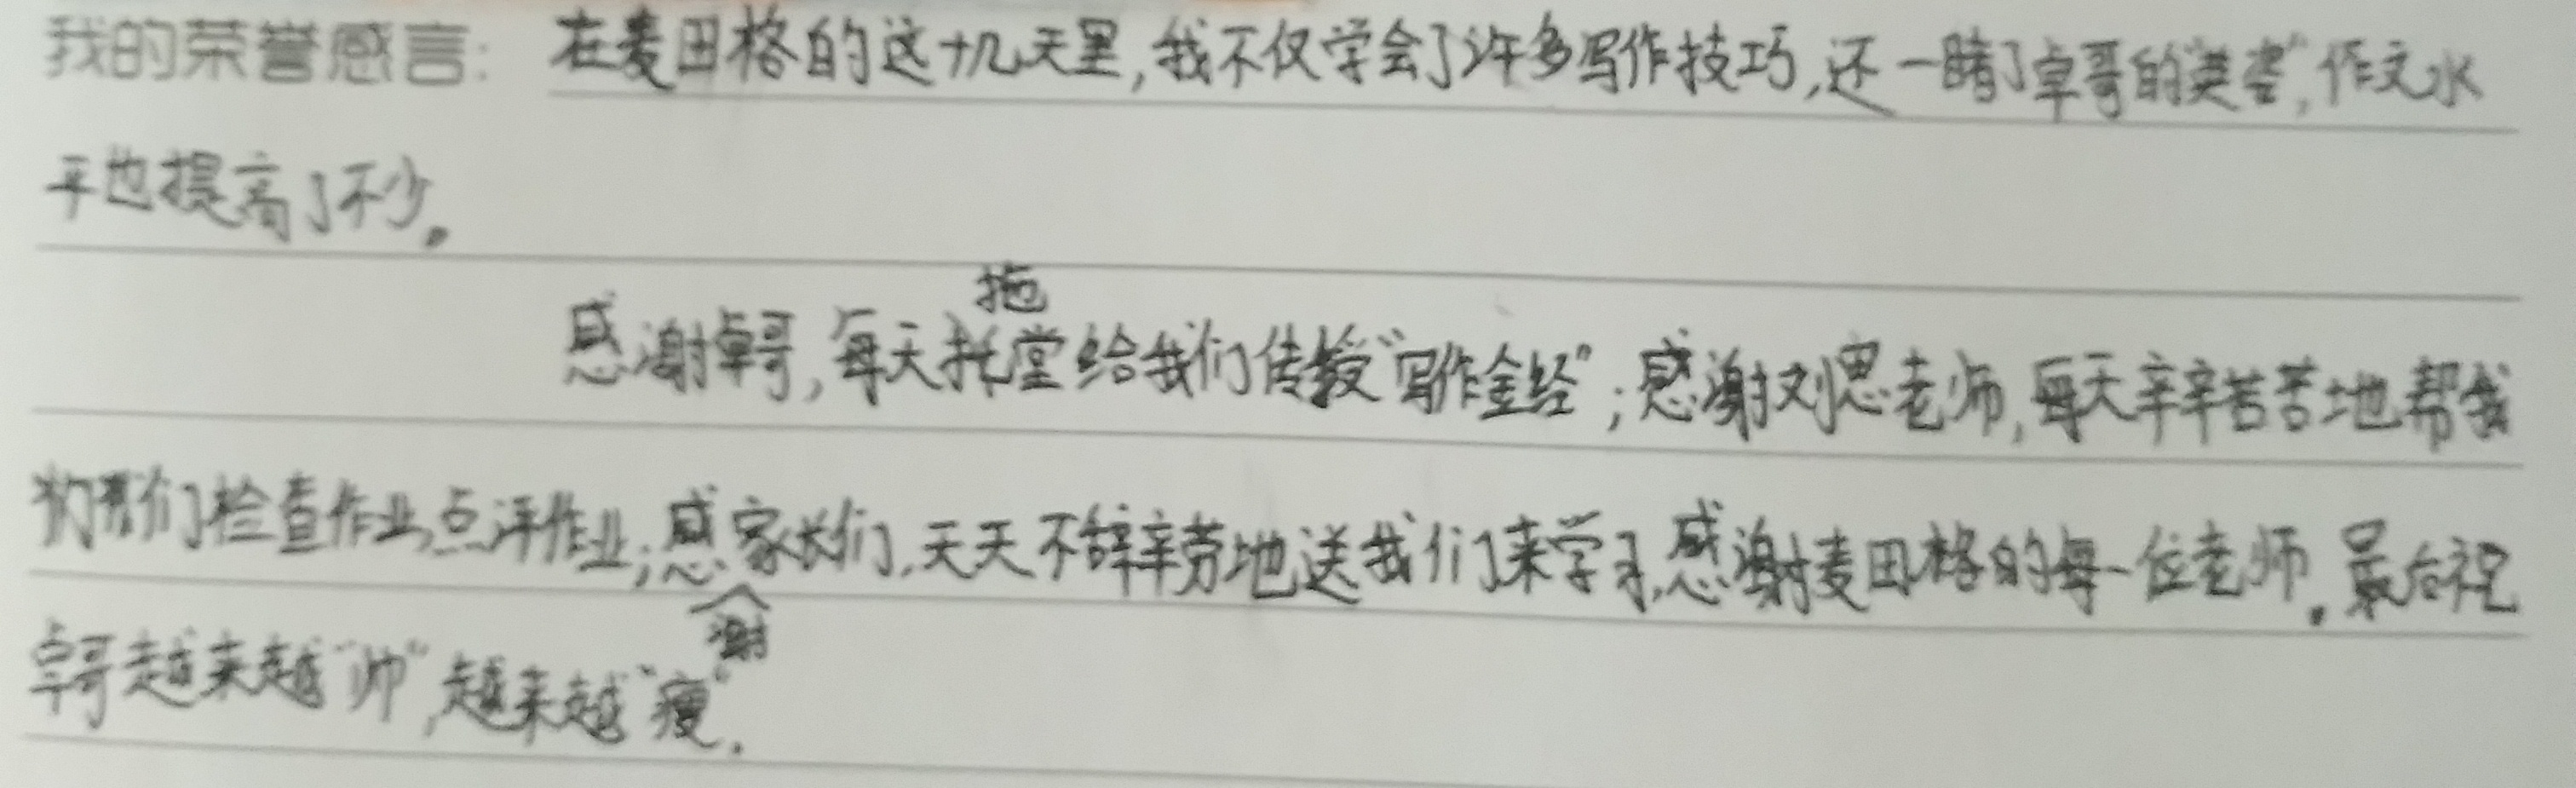 我的荣誉感言：在麦田格的这十几天里,我不仅学会了许多写作技巧,还一睹了卓哥的"英姿",作文水
平也提高了不少。
拖
感谢卓哥,每天托堂给我们传授"写作金经";感谢刘思老师,每天辛辛苦苦地帮我
们检查作业,点评作业;感家长们,天天不辞辛劳地送我们来学习,感谢麦田格的每一位老师。最后祝
谢
卓哥越来越"帅",越来越"瘦"。